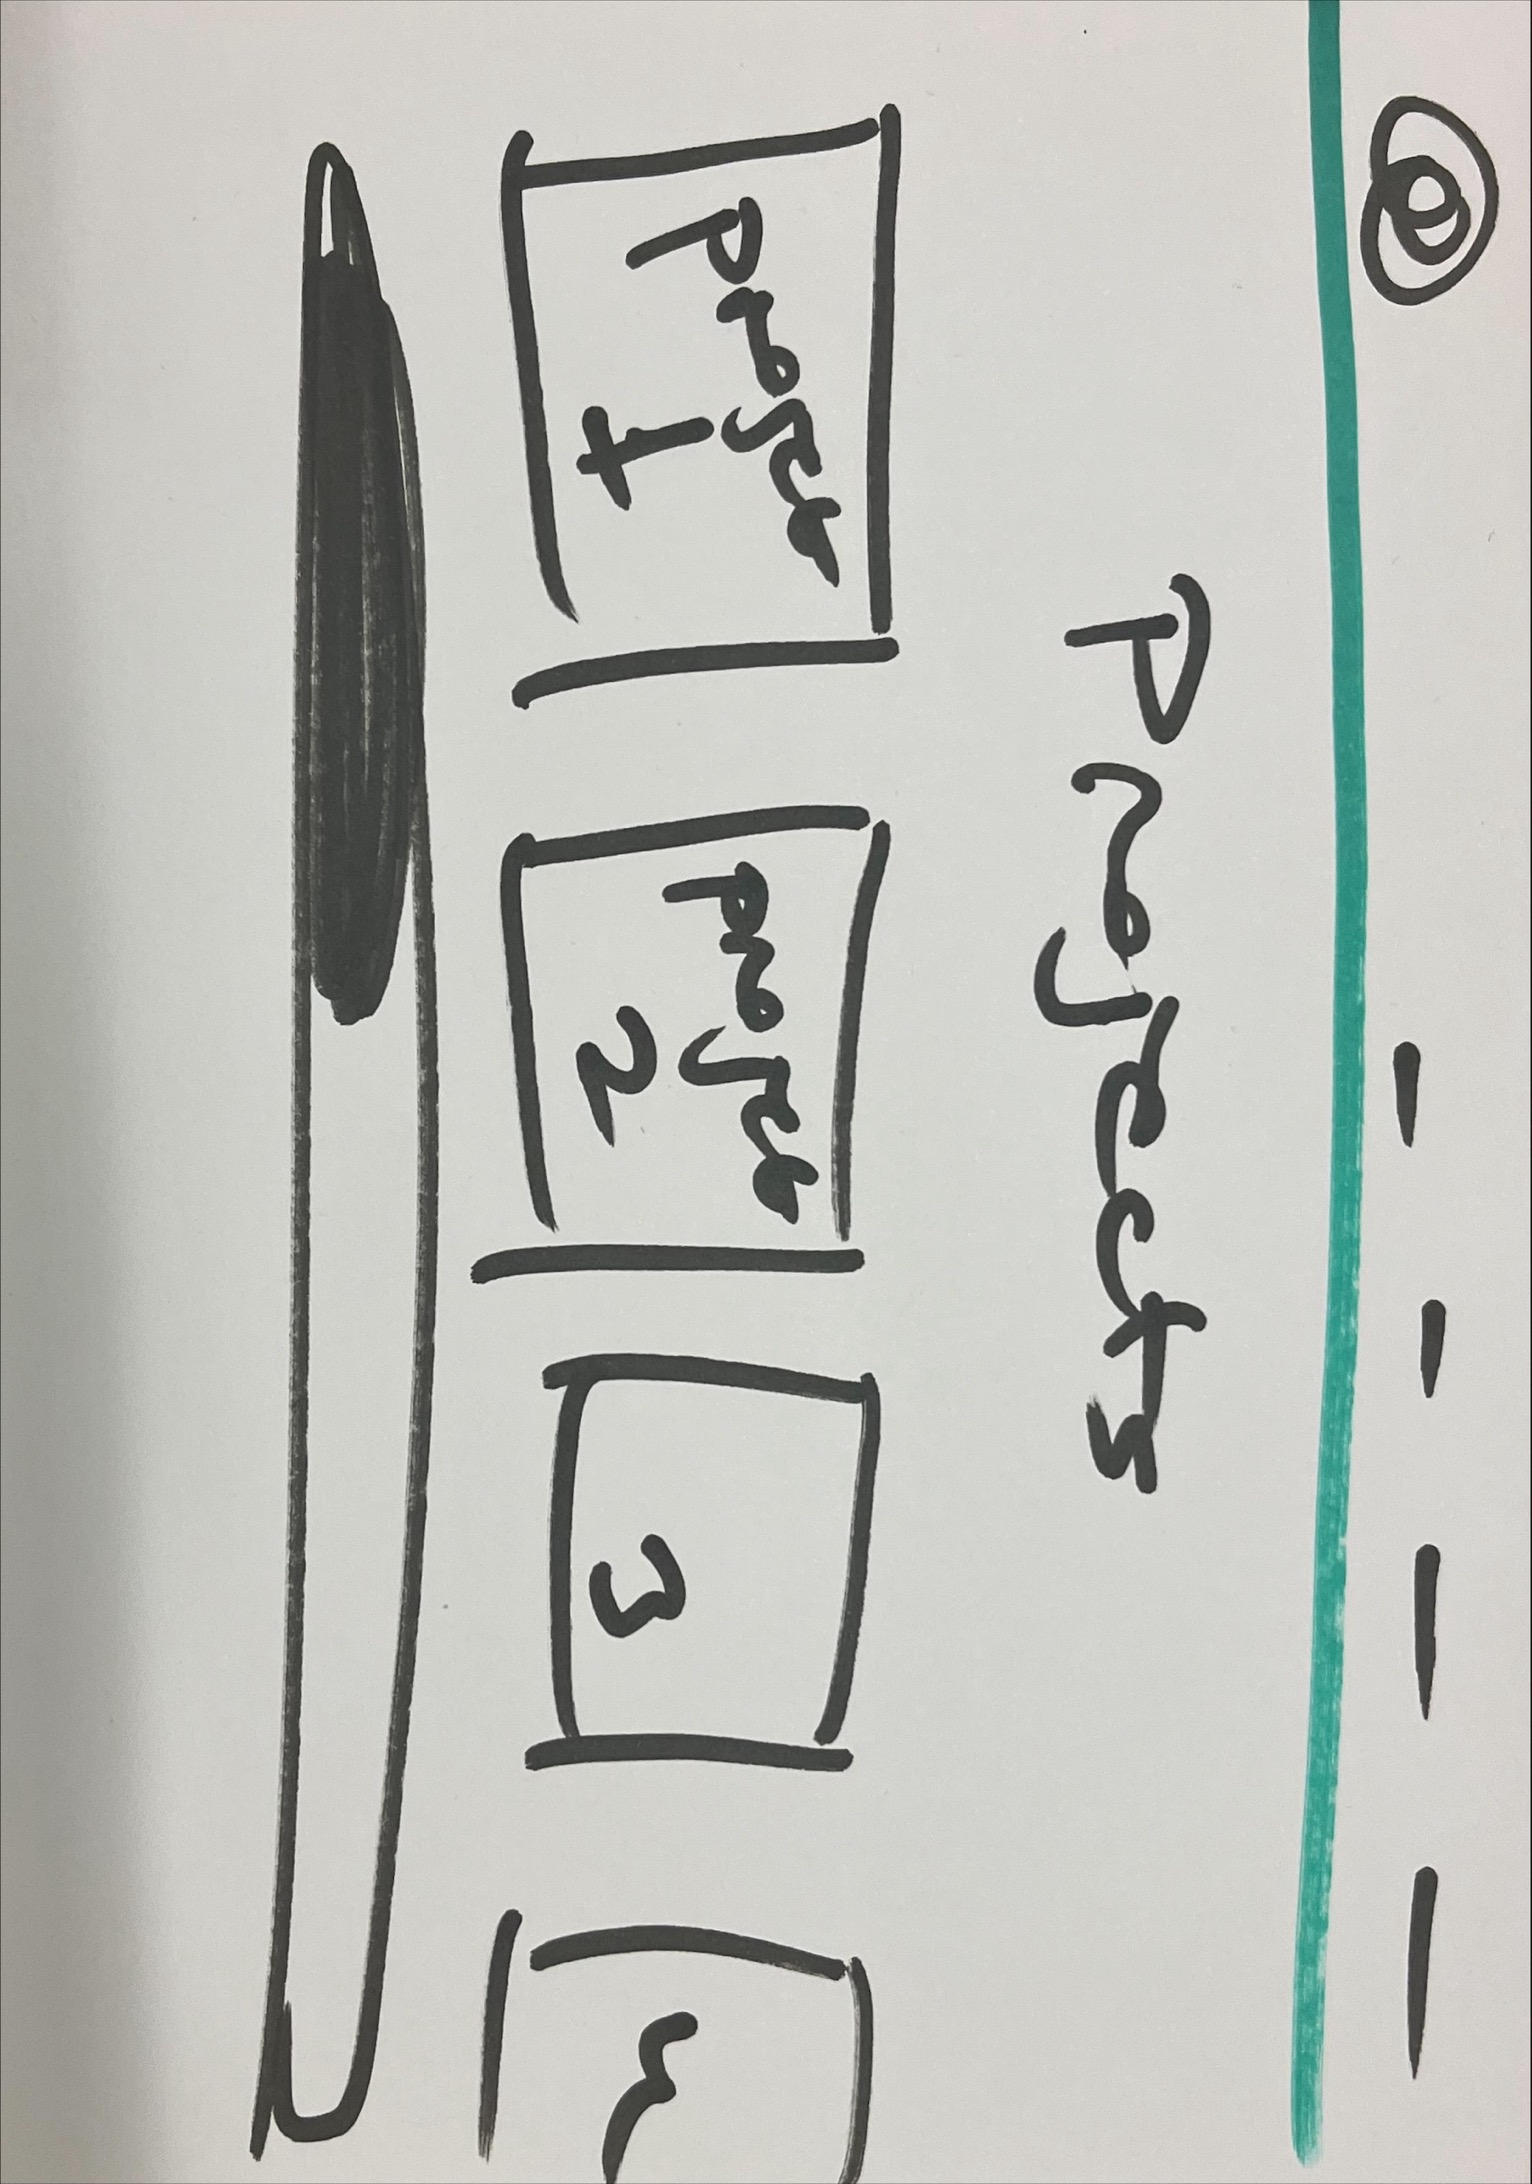 Projects
project
1
project
2
3